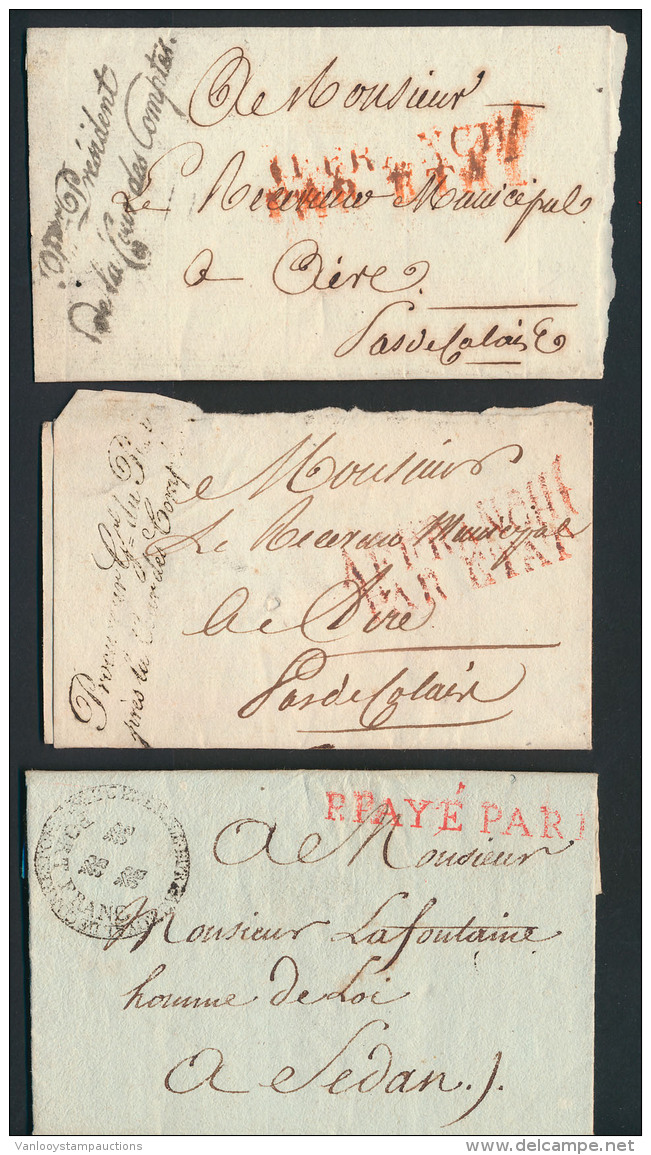 Premier Président
de la Cour des Comptes.
A Monsieur
Le Receveur Municipal
a Aire.
Pas de Calais
AFFRANCHI
PAR ETAT
Procureur Gal du
près la Cour des
A Monsieur
Le Receveur Municipal
A Aire
Pas de Calais
AFFRANCHI
PAR ETAT
PORT
FRANC
P.PAYÉ PAR
A Monsieur
Monsieur Lafontaine
homme de Loi
A Sedan.
Vanlooystampauctions
delcampe.net